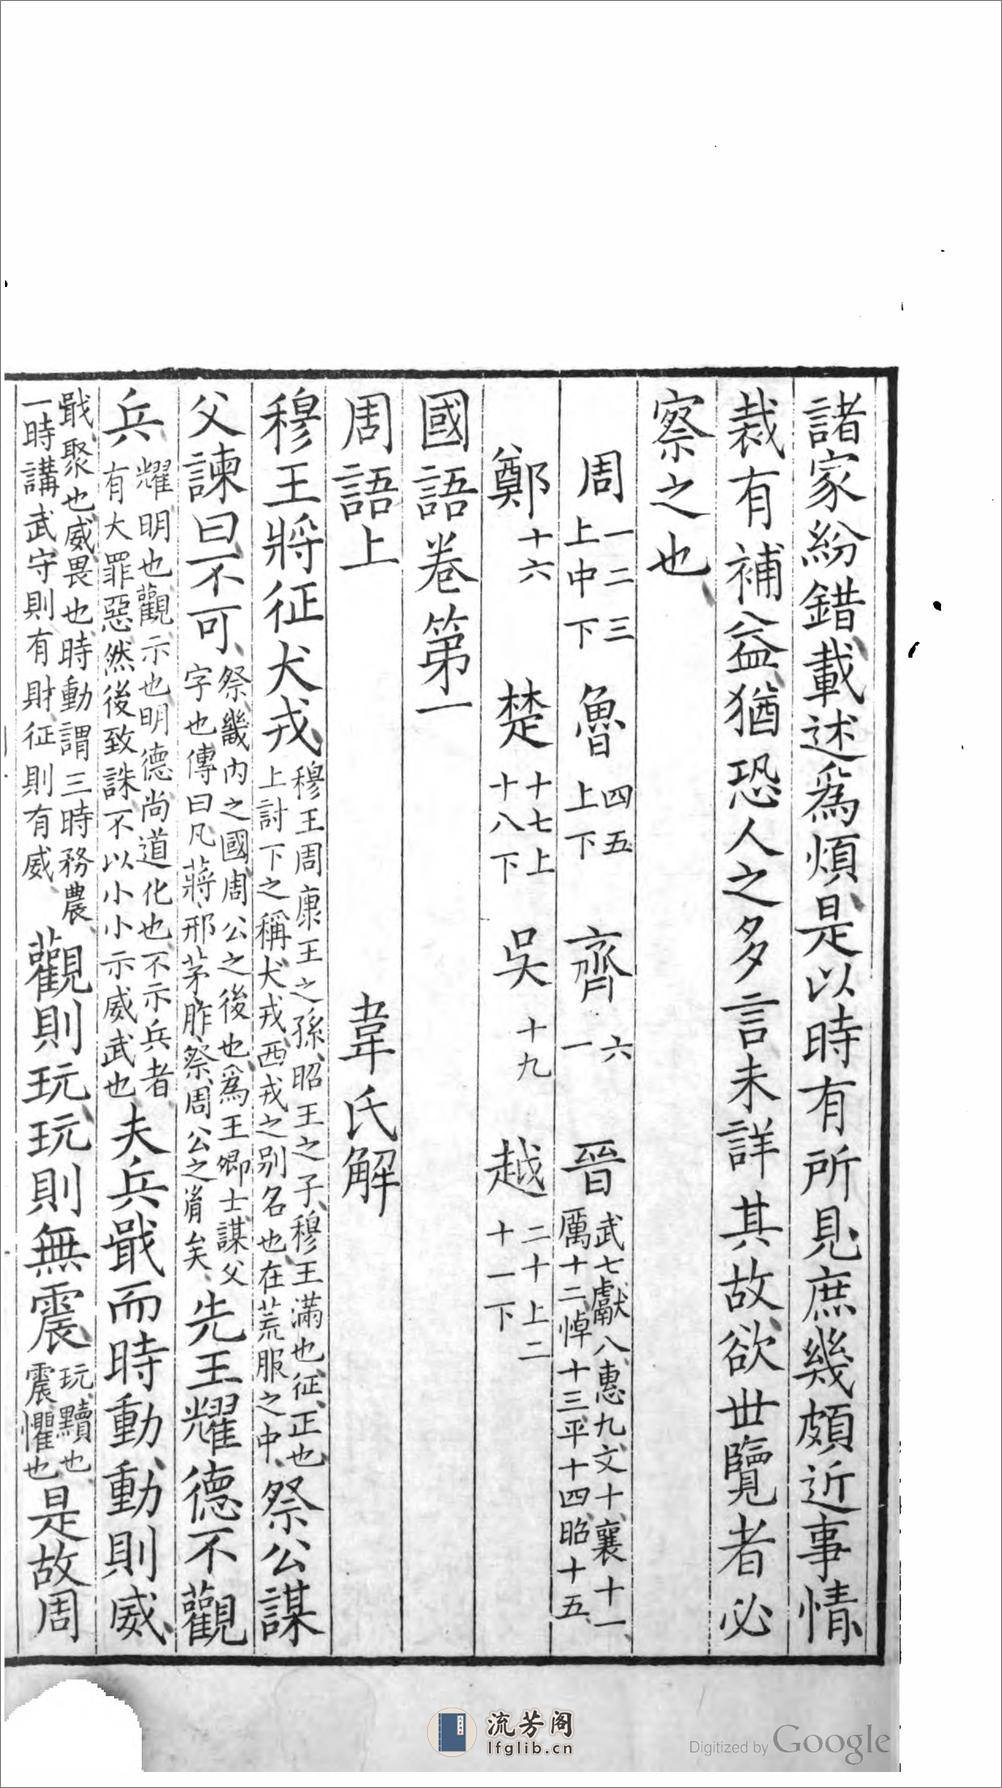 諸家紛錯載述爲煩是以時有所見庶幾頗近事情
裁有補益猶恐人之多言未詳其故欲丗覽者必
察之也
周 一上二中三下 魯 四上五下 齊 六一 晉 武七獻八惠九文十襄十一厲十二悼十三平十四昭十五
鄭 十六 楚 十七上十八下 吳 十九 越 二十上二十一下
國語卷第一
周語上 韋氏解
穆王將征犬戎 穆王周康王之孫昭王之子穆王滿也征正也上討下之稱犬戎西戎之别名也在荒服之中 祭公謀
父諫曰不可 祭畿内之國周公之後也爲王卿士謀父字也傳曰凡蔣邢茅胙祭周公之胤矣 先王耀德不觀
兵 耀明也觀示也明德尚道化也不示兵者有大罪惡然後致誅不以小小示威武也 夫兵戢而時動動則威
戢聚也威畏也時動謂三時務農一時講武守則有財征則有威 觀則玩玩則無震 玩黷也震懼也 是故周
流芳阁
lfglib.cn
Digitized by Google